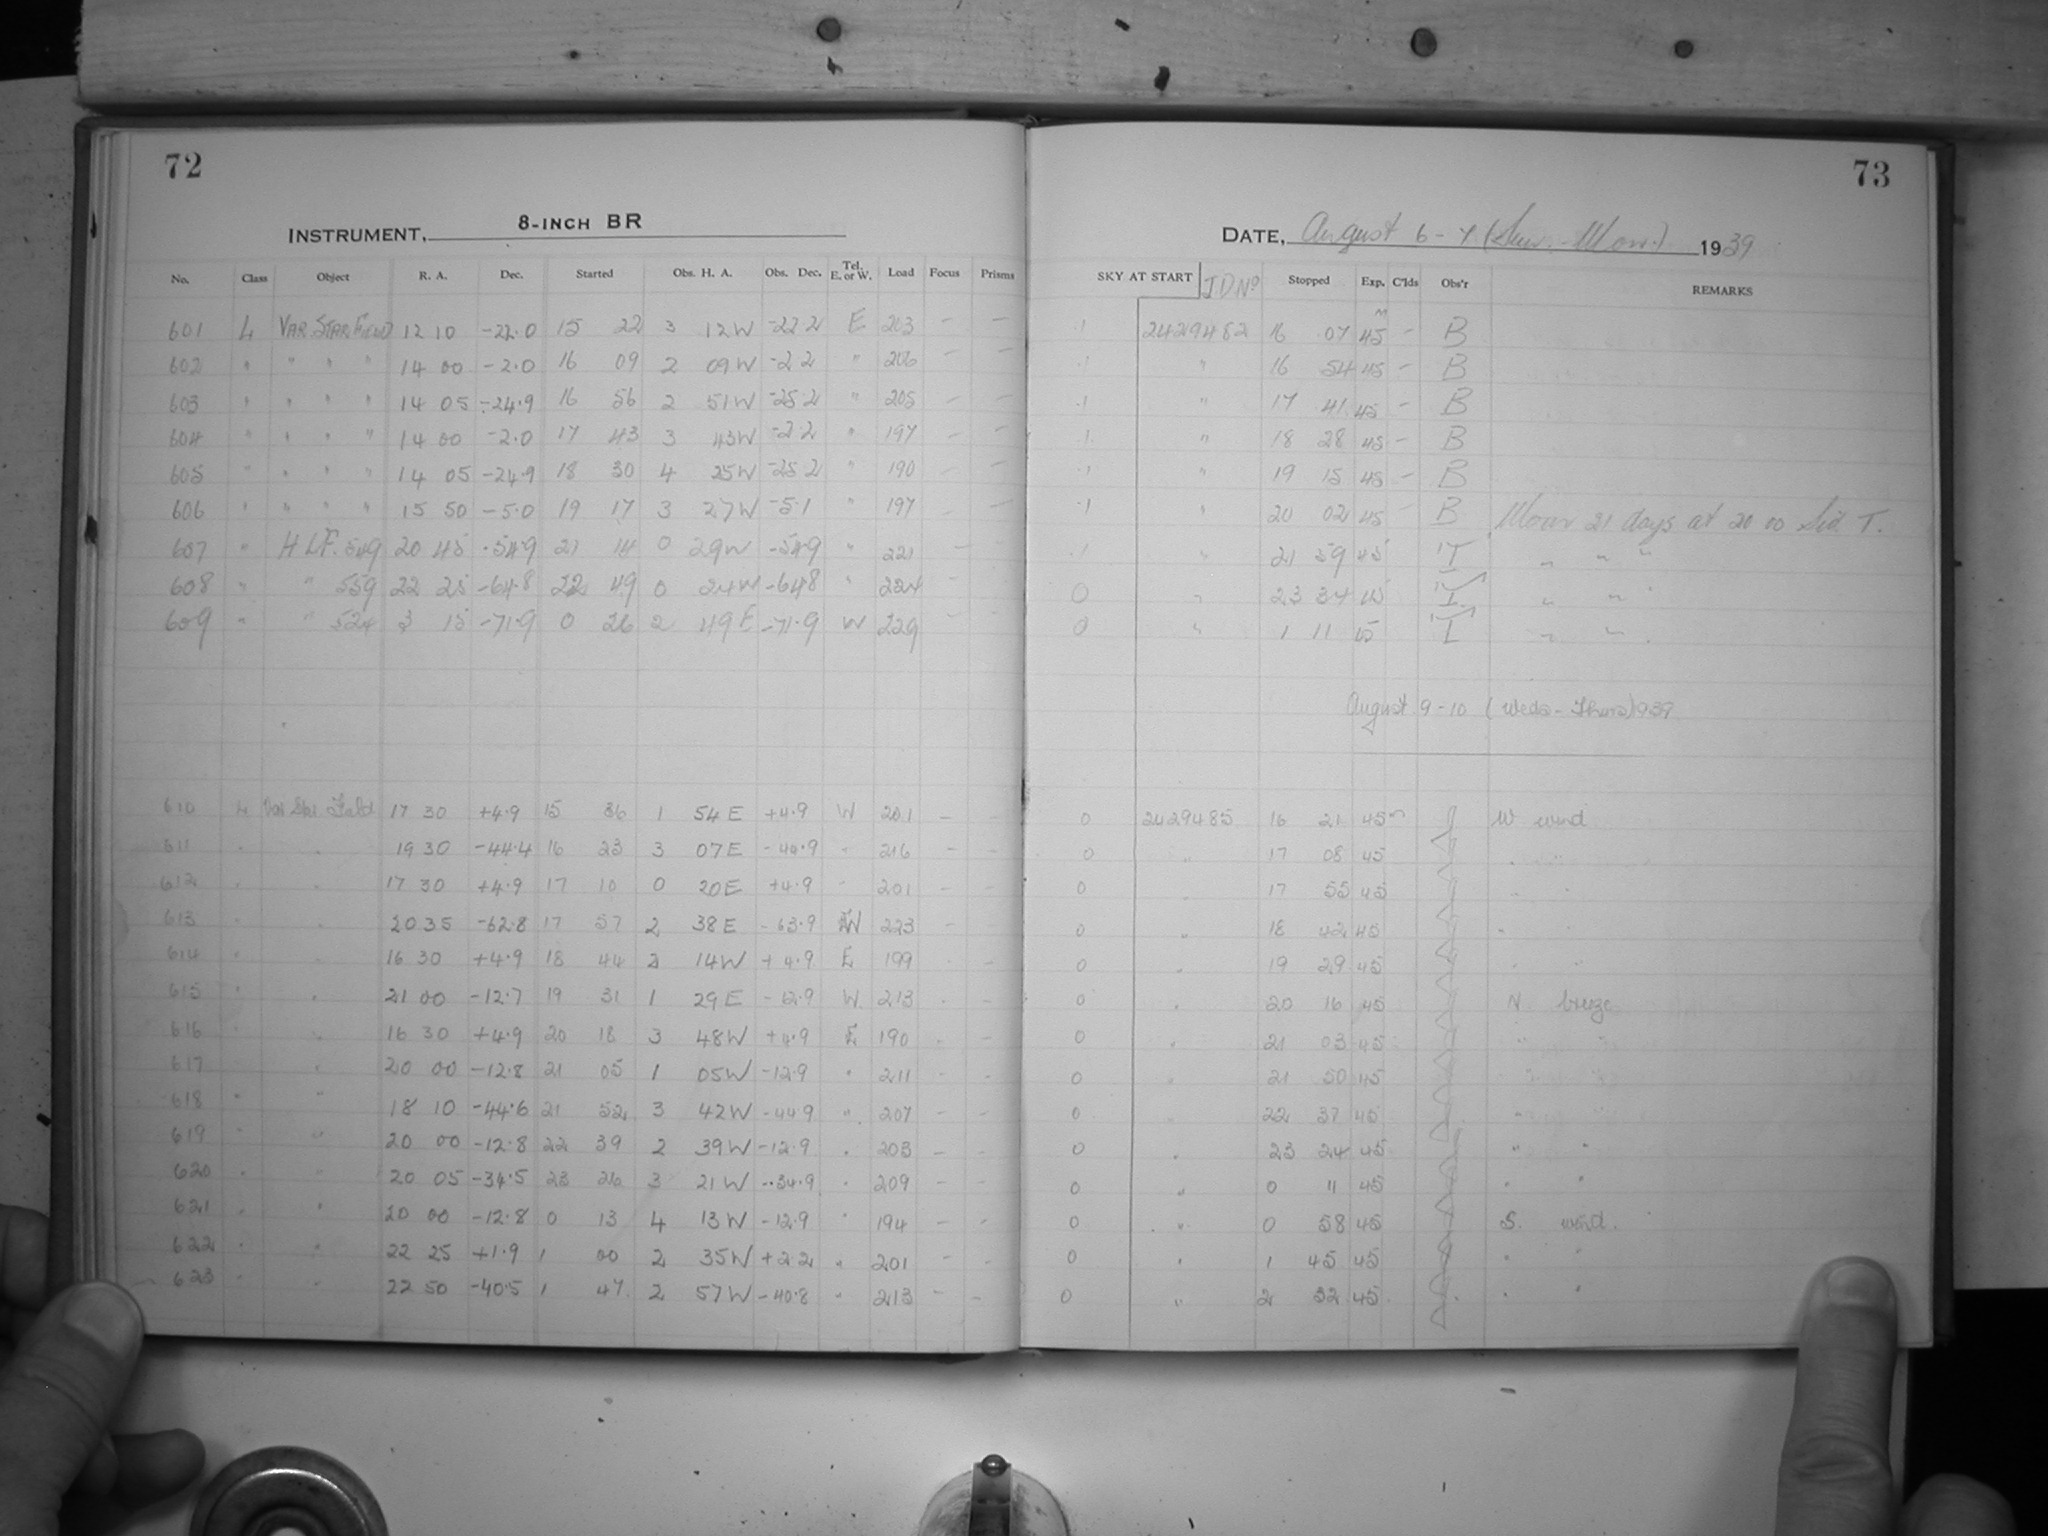 72
INSTRUMENT, 8-INCH BR
No. Class Object R. A. Dec. Started Obs. H. A. Obs. Dec. Tel. E. or W. Load Focus Prisms
601 L VAR STAR FIELD 12 10 -22.0 15 22 3 12 W -22.2 E 203 - -
602 " " " " 14 00 -2.0 16 09 2 09 W -2.2 " 206 - -
603 " " " " 14 05 -24.9 16 56 2 51 W -25.2 " 205 - -
604 " " " " 14 00 -2.0 17 43 3 43 W -2.2 " 197 - -
605 " " " " 14 05 -24.9 18 30 4 25 W -25.2 " 190 - -
606 " " " " 15 50 -5.0 19 17 3 27 W -5.1 " 197 - -
607 " H LF. 549 20 45 -54.9 21 14 0 29 W -54.9 " 221 - -
608 " " 559 22 25 -64.8 22 49 0 24 W -64.8 " 224 -
609 " " 524 3 15 -71.9 0 26 2 49 E -71.9 W 229 - -
610 L Var Star Field 17 30 +4.9 15 36 1 54 E +4.9 W 201 - -
611 " " 19 30 -44.4 16 23 3 07 E -44.9 " 216 - -
612 " " 17 30 +4.9 17 10 0 20 E +4.9 " 201 - -
613 " " 20 35 -62.8 17 57 2 38 E -63.9 W 223 - -
614 " " 16 30 +4.9 18 44 2 14 W +4.9 E 199 - -
615 " " 21 00 -12.7 19 31 1 29 E -12.9 W 213 - -
616 " " 16 30 +4.9 20 18 3 48 W +4.9 E 190 - -
617 " " 20 00 -12.8 21 05 1 05 W -12.9 " 211 - -
618 " " 18 10 -44.6 21 52 3 42 W -44.9 " 207 - -
619 " " 20 00 -12.8 22 39 2 39 W -12.9 " 203 - -
620 " " 20 05 -34.5 23 26 3 21 W -34.9 " 209 - -
621 " " 20 00 -12.8 0 13 4 13 W -12.9 " 194 - -
622 " " 22 25 +1.9 1 00 2 35 W +2.2 " 201 - -
623 " " 22 50 -40.5 1 47 2 57 W -40.8 " 213 - -
73
DATE, August 6-7 (Sun.-Mon.) 1939
SKY AT START JD No Stopped Exp. C'lds Obs'r REMARKS
.1 2429482 16 07 45m - B
.1 " 16 54 45 - B
.1 " 17 41 45 - B
.1 " 18 28 45 - B
.1 " 19 15 45 - B
.1 " 20 02 45 - B Moon 21 days at 20 00 Sid. T.
.1 " 21 59 45 T " " "
0 " 23 34 45 " "
0 " 1 11 45 " "
August 9-10 (Weds-Thurs) 1939
0 2429485 16 21 45m W wind
0 " 17 08 45 " "
0 " 17 55 45 " "
0 " 18 42 45 " "
0 " 19 29 45 " "
0 " 20 16 45 N breeze
0 " 21 03 45 " "
0 " 21 50 45 " "
0 " 22 37 45 " "
0 " 23 24 45 " "
0 " 0 11 45 " "
0 " 0 58 45 S. wind.
0 " 1 45 45 " "
0 " 2 32 45 " "